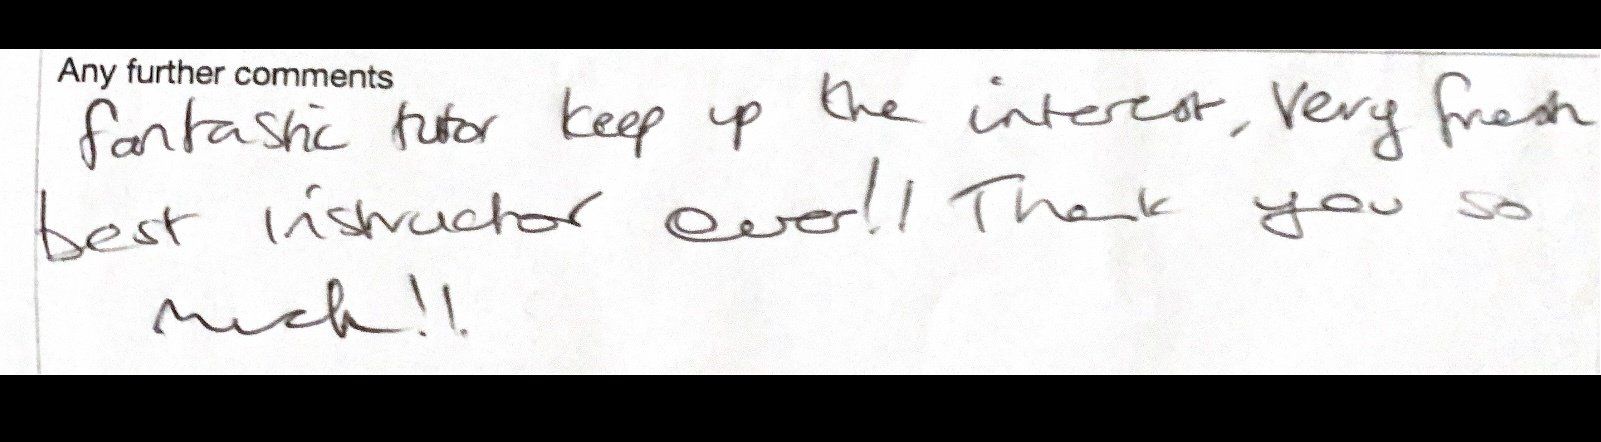 Any further comments
fantastic tutor keep up the interest, Very fresh
best instructor ever!! Thank you so
much!!